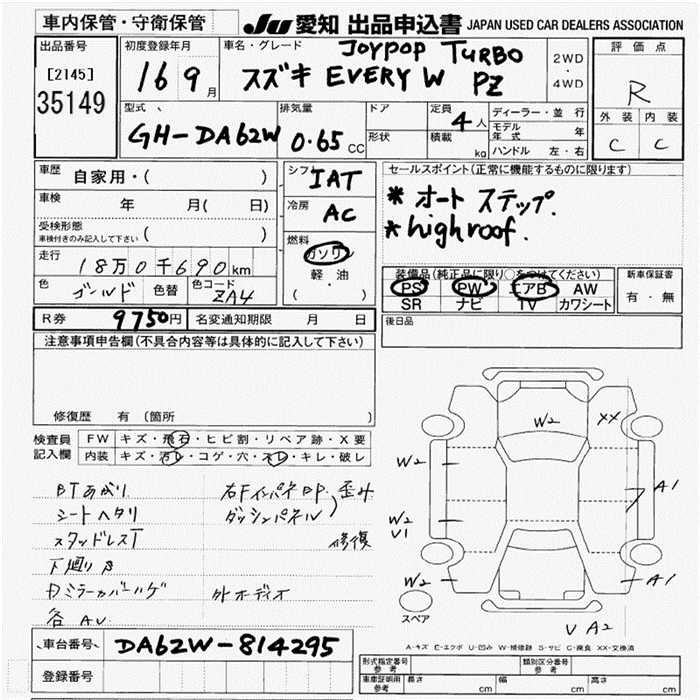 車内保管・守衛保管
JU 愛知 出品申込書 JAPAN USED CAR DEALERS ASSOCIATION
出品番号
[2145]
35149
初度登録年月
16 9月
車名・グレード
JOYPOP TURBO
スズキ EVERY W PZ
2WD
・
4WD
評価点
R
外装 内装
C C
型式
GH-DA62W
排気量
0.65 CC
ドア
形状
定員 4人
積載 kg
ディーラー・並行
モデル年式 年
ハンドル 左・右
車歴 自家用・( )
車検 年 月( 日)
受検形態
車検付きのみ記入して下さい ( )
走行
18万0千690km
色 ゴールド 色替 色コード ZA4
シフト IAT
冷房 AC
燃料
ガソリン
軽・油
( )
セールスポイント(正常に機能するものに限ります)
* オートステップ.
* high roof.
装備品(純正品に限り○をつけてください)
PS PW エアB AW
SR ナビ TV カワシート
新車保証書
有・無
R券 9750円 名変通知期限 月 日
後日品
注意事項申告欄(不具合内容等は具体的に記入して下さい)
修復歴 有 (箇所
検査員
記入欄
FW キズ・飛石・ヒビ割・リペア跡・X要
内装 キズ・汚れ・コゲ・穴・スレ・キレ・破レ
BTあがり
シートヘタリ
スタッドレスT
下廻りサ
カミラーカバーハゲ
各AU
右Fインパネ DP
ダッシュパネル
歪み
修復
外オーディオ
W2
XX
W2
W2
V1
W2
A1
A1
V A2
スペア
A-キズ E-エクボ U-凹み W-補修跡 S-サビ C-腐食 XX-交換済
車台番号 DA62W-814295
登録番号
形式指定番号
参考
類別区分番号
参考
車庫証明用
参考
長さ cm 幅 cm 高さ cm